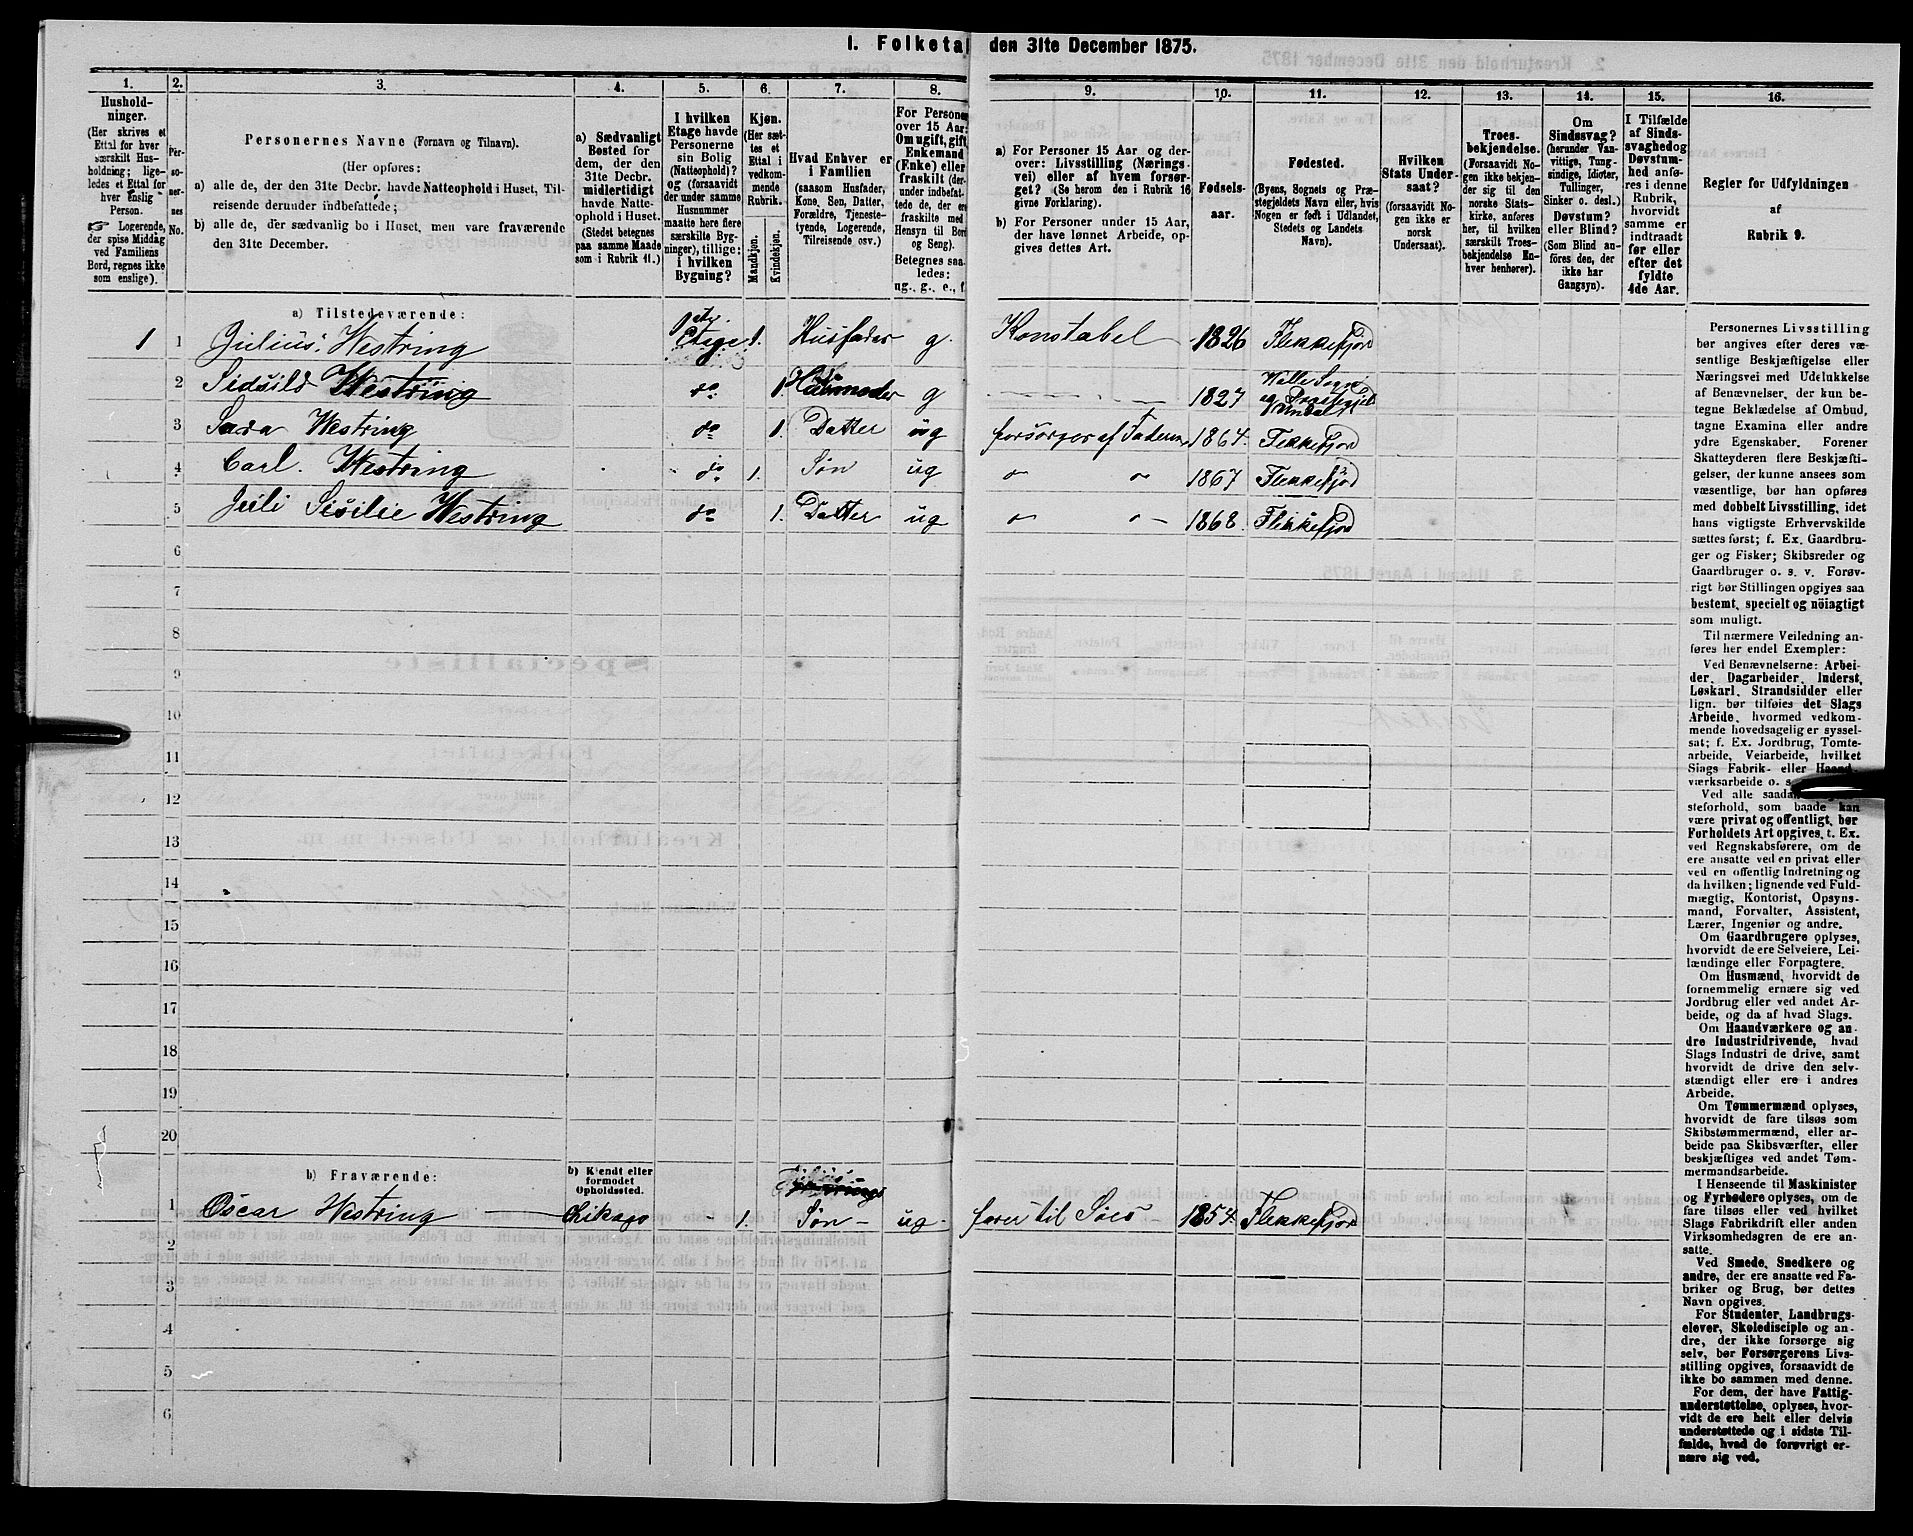 I. Folketal den 31te December 1875.
1.
2.
3.
4.
5.
6.
7.
8.
9.
10.
11.
12.
13.
14.
15.
16.
Hushold-
ninger.
(Her skrives et
Ettal for hver
særskilt Hus-
holdning; lige-
ledes et Ettal for
hver enslig
Person.
☞ Logerende,
der spise Middag
ved Familiens
Bord, regnes ikke
som enslige).
Per-
so-
ner-
nes
No.
Personernes Navne (Fornavn og Tilnavn).
(Her opføres:
a) alle de, der den 31te Decbr. havde Natteophold i Huset, Til-
reisende derunder indbefattede;
b) alle de, der sædvanlig bo i Huset, men vare fraværende
den 31te December.
a) Sædvanligt
Bosted for
dem, der den
31te Decbr.
midlertidigt
havde Natte-
ophold i Huset.
(Stedet betegnes
paa samme Maade
som i Rubrik 11.)
I hvilken
Etage havde
Personerne
sin Bolig
(Natteophold)?
og (forsaavidt
der under samme
Husnummer
maatte høre flere
særskilte Byg-
ninger), tillige:
i hvilken
Bygning?
Kjøn.
(Her sæt-
tes et
Ettal i
vedkom-
mende
Rubrik.
Mandkjøn.
Kvindekjøn.
Hvad Enhver er
i Familien
(saasom Husfader,
Kone, Søn, Datter,
Forældre, Tjeneste-
tyende, Logerende,
Tilreisende osv.)
For Personer
over 15 Aar:
Om ugift, gift,
Enkemand
(Enke) eller
fraskilt (der-
under indbefat-
tede de, der ere
fraskilte med
Hensyn til Bord
og Seng).
Betegnes saa-
ledes:
ug., g., e., f.
a) For Personer 15 Aar og der-
over: Livsstilling (Nærings-
vei) eller af hvem forsør-
get? (Se herom den i Rubrik 16
givne Forklaring).
b) For Personer under 15 Aar,
der have lønnet Arbeide, op-
gives dettes Art.
Fødsels-
aar.
Fødested.
(Byens, Sognets og Præ-
stegjeldets Navn eller, hvis
Nogen er født i Udlandet,
Stedets og Landets
Navn).
Hvilken
Stats Under-
saat?
(forsaavidt No-
gen ikke er
norsk
Undersaat).
Troes-
bekjendelse.
(Forsaavidt No-
gen ikke bekjen-
der sig til den
norske Stats-
kirke, anføres
her, til hvilken
særskilt Troes-
bekjendelse En-
hver henhører).
Om
Sindssvag?
(herunder Van-
vittige, Tung-
sindige, Idioter,
Tullinger,
Sinker o. desl.)
Døvstum?
eller Blind?
(Som Blind an-
føres den, der
ikke har
Gangsyn).
I Tilfælde
af Sinds-
svaghed og
Døvstum-
hed anfø-
res i denne
Rubrik,
hvorvidt
samme er
indtraadt
før eller
efter det
fyldte
4de Aar.
Regler for Udfyldningen
af
Rubrik 9.
a) Tilstedeværende:
1 1 Julius Westring 1ste Etage 1. Husfader g. Konstabel 1826 Flekkefjord
2 Sidsild Westring do 1. Husmoder g 1827 Walle Sogn og Præstegjeld
3 Sara Westring do 1. Datter ug forsørges af Faderen 1864. Flekkefjord
4 Carl. Westring do 1. Søn ug " " 1867 Flekkefjord
5 Juli Sisilie Westring do 1. Datter ug " " 1868. Flekkefjord
6
7
8
9
10
11
12
13
14
15
16
17
18
19
20
b) Fraværende:
b) Kjendt eller
formodet
Opholdssted.
1 Oscar Westring Chikago 1. Julius Westrings Søn ug. farer til Søes 1854. Flekkefjord
2
3
4
5
6
Personernes Livsstilling
bør angives efter deres væ-
sentlige Beskjæftigelse eller
Næringsvei med Udelukkelse
af Benævnelser, der kun be-
tegne Beklædelse af Ombud,
tagne Examina eller andre
ydre Egenskaber. Forener
Skatteyderen flere Beskjæfti-
gelser, der kunne ansees som
væsentlige, bør han opføres
med dobbelt Livsstilling, idet
hans vigtigste Erhvervskilde
sættes først; f. Ex. Gaardbru-
ger og Fisker; Skibsreder og
Gaardbruger o. s. v. Forøv-
rigt bør Stillingen opgives saa
bestemt, specielt og nöiagtigt
som muligt.
Til nærmere Veiledning an-
føres her endel Exempler:
Ved Benævnelserne: Arbei-
der, Dagarbeider, Inderst,
Løskarl, Strandsidder eller
lign. bør tilføies det Slags
Arbeide, hvormed vedkom-
mende hovedsagelig er syssel-
sat; f. Ex. Jordbrug, Tomte-
arbeide, Veiarbeide, hvilket
Slags Fabrik- eller Haand-
værksarbeide o. s.
Ved alle saadanne
steforhold, som baade kan
være privat og offentligt, bør
Forholdets Art opgives, t. Ex.
ved Regnskabsførere, om de
ere ansatte ved en privat eller
ved en offentlig Indretning og
da hvilken; lignende ved Fuld-
mægtig, Kontorist, Opsyns-
mand, Forvalter, Assistent,
Lærer, Ingeniør og andre.
Om Gaardbrugere oplyses,
hvorvidt de ere Selveiere, Lei-
lændinge eller Forpagtere.
Om Husmænd, hvorvidt de
fornemmelig ernære sig ved
Jordbrug eller ved andet Ar-
beide, og da af hvad Slags.
Om Haandværkere og an-
dre Industridrivende, hvad
Slags Industri de drive, samt
hvorvidt de drive den selv-
stændigt eller ere i andres
Arbeide.
Om Tømmermænd oplyses,
hvorvidt de fare tilsøs som
Skibstømmermænd, eller ar-
beide paa Skibsværfter, eller
beskjæftiges ved andet Tøm-
mermandsarbeide.
I Henseende til Maskinister
og Fyrbødere oplyses, om de
fare tilsøs eller ved hvilket
Slags Fabrikdrift eller anden
Virksomhedsgren de ere an-
satte.
Ved Smede, Snedkere og
andre, der ere ansatte ved Fa-
briker og Brug, bør dettes
Navn opgives.
For Studenter, Landbrugs-
elever, Skoledisciple og an-
dre, der ikke forsørge sig
selv, bør Forsørgerens Livs-
stilling opgives, forsaavidt de
ikke bo sammen med denne.
For dem, der have Fattig-
understøttelse, oplyses, hvor-
vidt de ere helt eller delvis
understøttede og i sidste Til-
fælde, hvad de forøvrigt er-
nære sig ved.